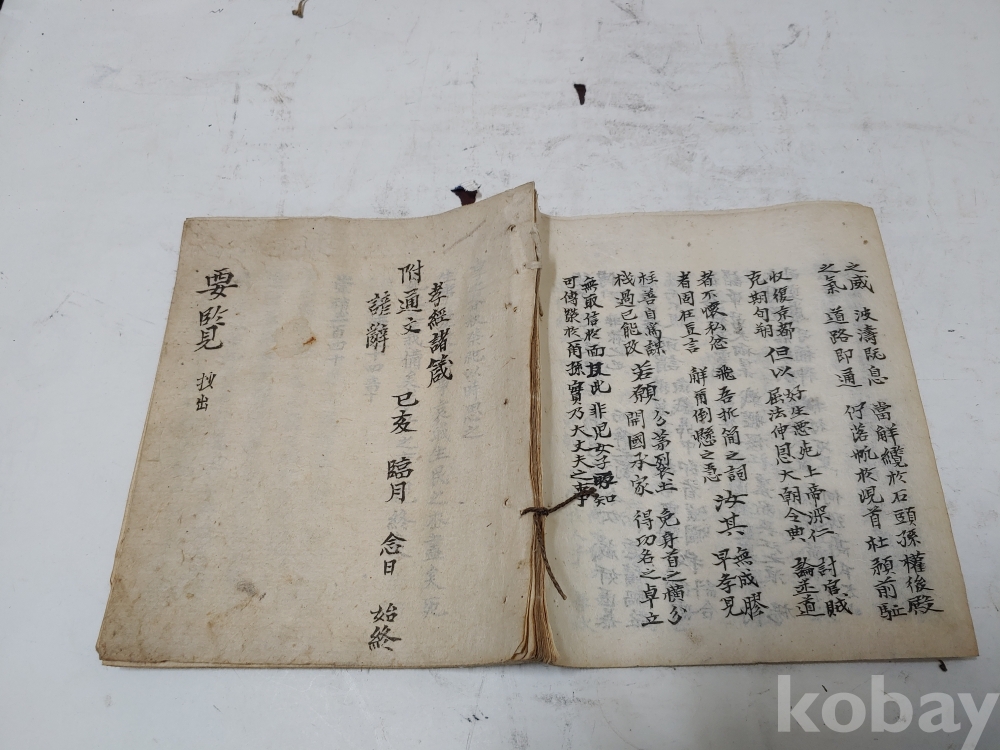 之威 波濤既息 當解纜於石頭孫權後殿
之氣 道路即通 佇落帆於峴首杜預前駈
收復京都 但以 好生惡死上帝深仁 討官賊
克期旬朔 屈法伸恩大朝令典 諭迷道
者不懷私忿 飛吾折簡之詞 汝其 無成膠
者固在直言 解爾倒懸之急 早學見
柱善自爲謀 分茅列土 免身首之橫分
機過已能改 若願 開國承家 得功名之卓立
無取信於面 此 非兒女子 知
可傳榮於爾孫 實乃大丈夫之事
孝經諸箴
附通文
諺辭 己亥 臨月 念日 始終
要覽 抄出
kobay